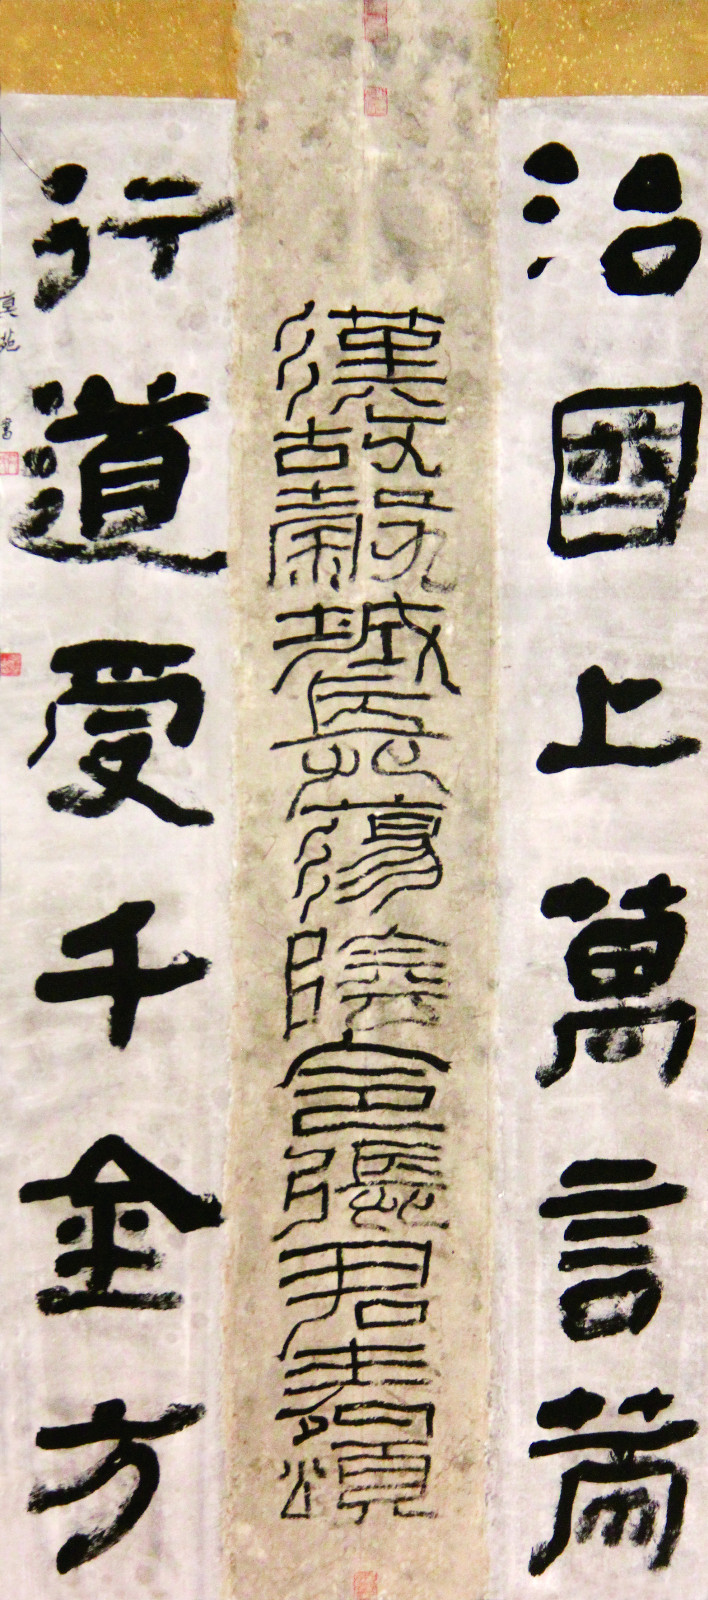 治国上萬言篇
漢故穀城長蕩陰令張君表頌
行道受千金方
莫苑書